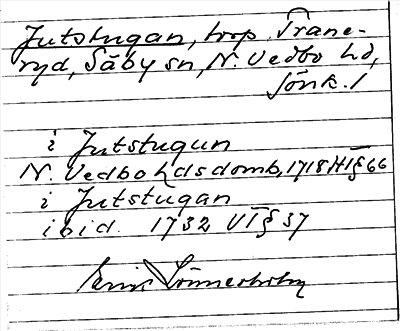 Jutstugan, torp, Trane-
ryd, Säby sn, N. Vedbo hd,
Jönk. l
i Jutstugun
N. Vedbo hdsdomb, 1718 HT § 66
i Jutstugan
ibid. 1732 VT § 37
Linnerholm